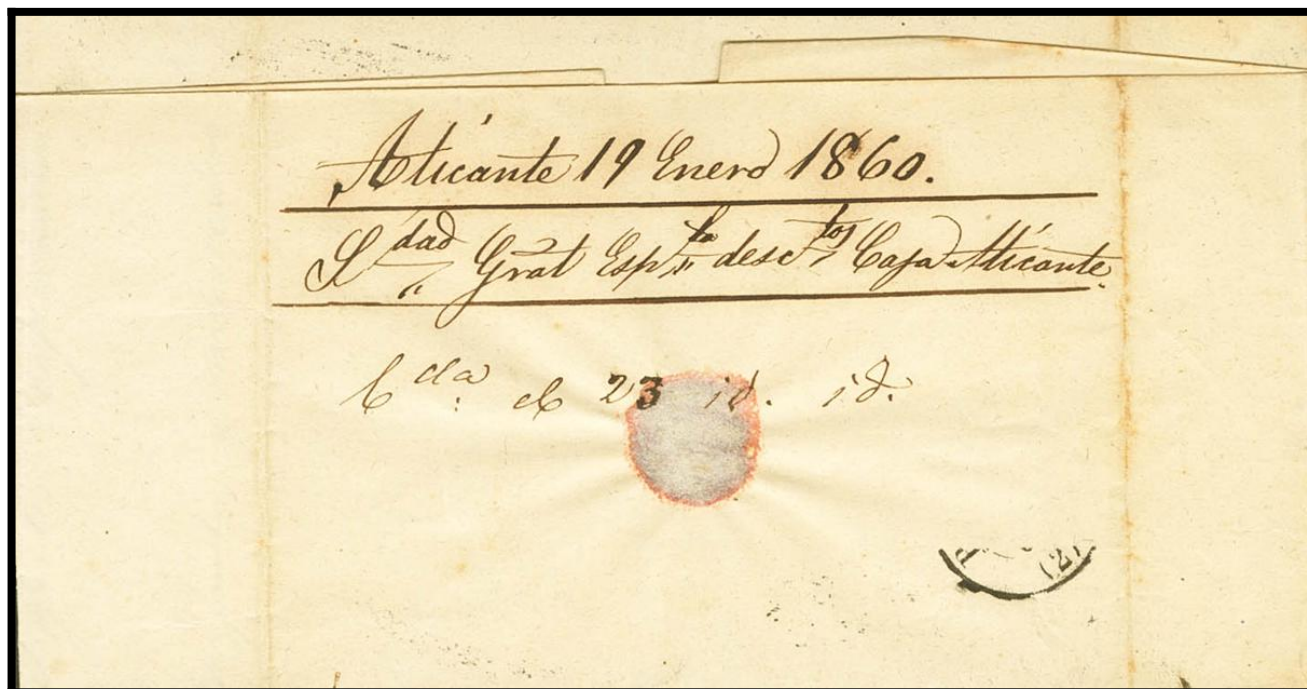 Alicante 19 Enero 1860.
S.dad Gral Esp.la desc.tos Caja Alicante.
C.da el 23 id. id.
(2)